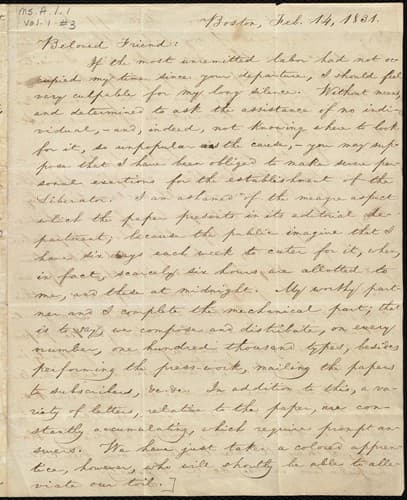 Ms. A. 1. 1
Vol. 1 #3
Boston, Feb. 14, 1831.
Beloved Friend:
If the most unremitted labor had not oc-
cupied my time since your departure, I should feel
very culpable for my long silence. Without means,
and determined to ask the assistance of no indi-
vidual, – and, indeed, not knowing where to look
for it, so unpopular is the cause, – you may sup-
pose that I have been obliged to make severe per-
sonal exertions for the establishment of the
Liberator. I am ashamed of the meagre aspect
which the paper presents in its editorial de-
partment; because the public imagine that I
have six days each week to cater for it, when,
in fact, scarcely six hours are allotted to
me, and these at midnight. My worthy part-
ner and I complete the mechanical part; that
is to say, we compose and distribute, on every
number, one hundred thousand types, besides
performing the press-work, mailing the papers
to subscribers, &c. &c. In addition to this, a va-
riety of letters, relative to the paper, are con-
stantly accumulating, which require prompt an-
swers. We have just taken a colored appren-
tice, however, who will shortly be able to alle-
viate our toil.]